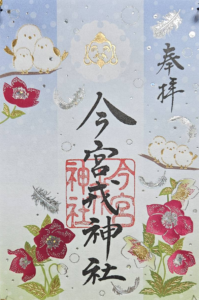 奉拝
今宮戎神社
今宮
神社